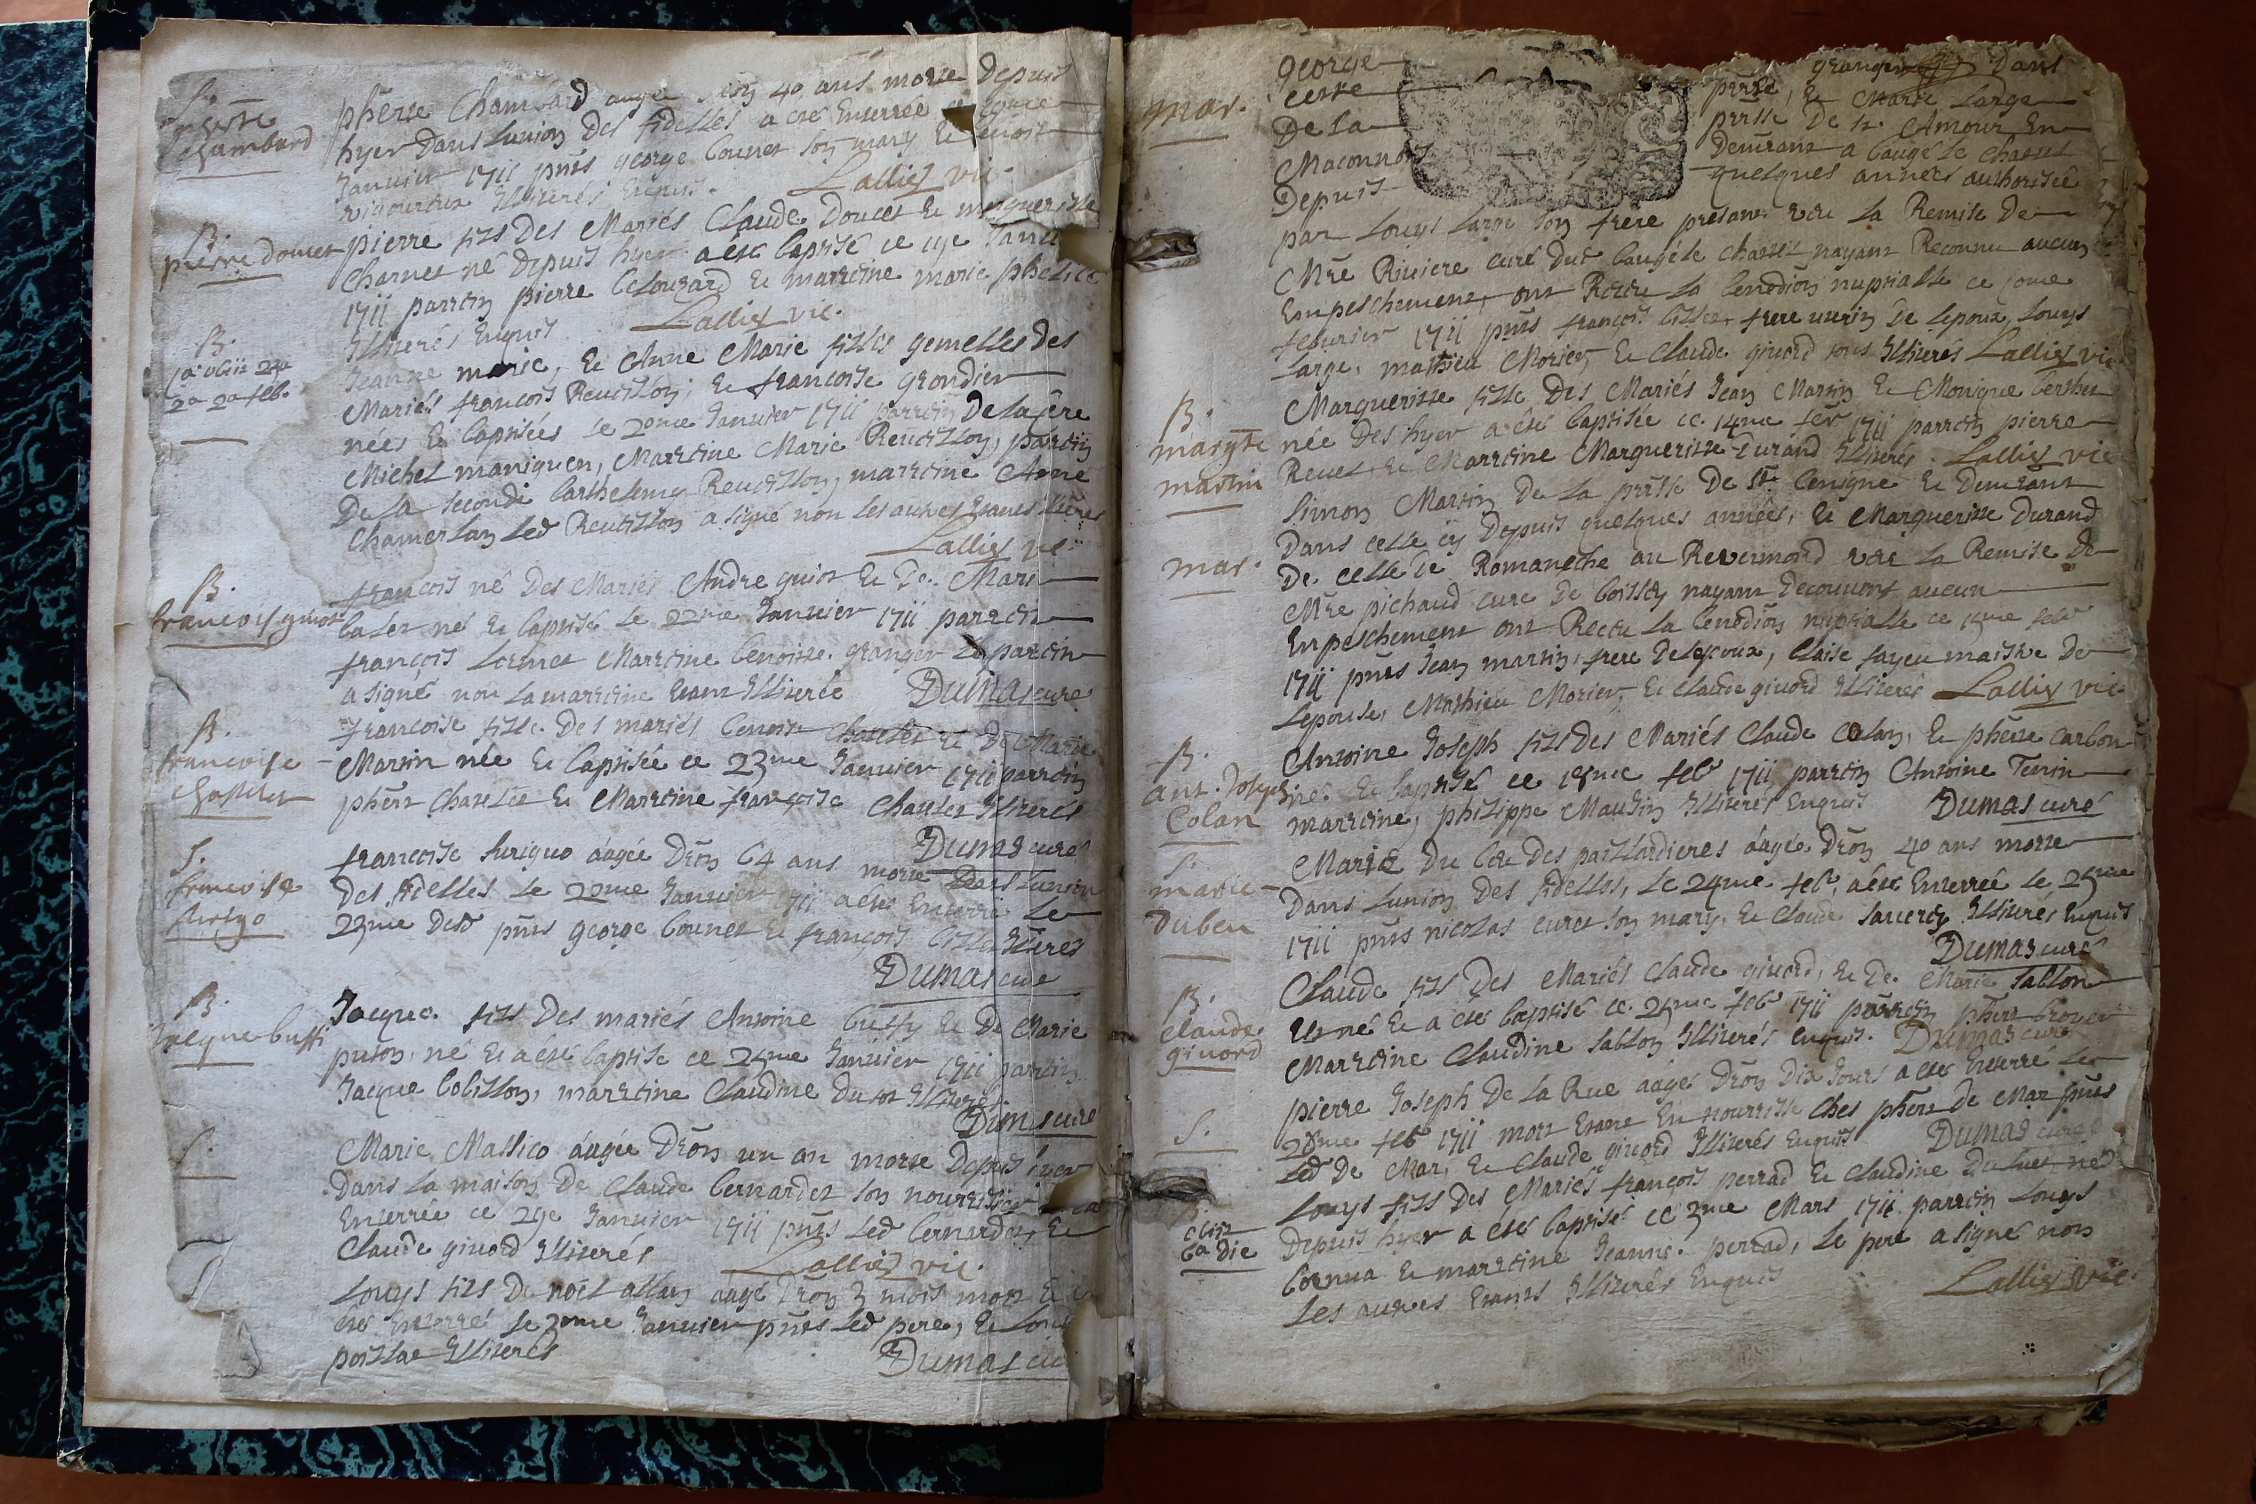 S.
pherre
chambard
pherre Chambard augée dron 40 ans morte Depuis
hyer Dans Lunion Des fidelles a été Enterrée ce
Janvier 1711 pnts george Counet son mary Et benoit
rigourdin Illiterés Enquis. Lalliez vic.
B.
pierre doucet
pierre fils Des Mariés Claude Doucet Et marguerite
Charnet né Depuis hyer a été baptisé ce 19e Janv
1711 parrein pierre Et marreine marie
Illiterés Enquis Lalliez vic.
B.
2a 2a feb.
Jeanne marie, Et Anne Marie filles gemelles Des
Mariés françois Reveillon, Et francoise grondier
nées Et baptisées le 20me Janvier 1711 parrein De la 1ere
Michel maniguen, Marreine Marie Reveillon, parrein
De la seconde barthelemy Reveillon, marreine Anne
Chamerlan led Reveillon a signé non les autres Etants Illiterés
Lalliez vic.
B.
francois guiot
françois né Des Mariés Andre guiot Et De. Marie
né Et baptisé le 22me Janvier 1711 parrein
françois Lormet Marreine benoitte granger Le parrein
a signé non la marreine Etant Illiterée Dumas curé
B.
francoise
chasselet
françoise fille Des mariés benoit Et De Marie
Martin née Et baptisée ce 23me Janvier 1711 parrein
phert Et Marreine françoise Illiterés
Dumas curé
S.
francoise
françoise aagée Dron 64 ans morte Dans lunion
Des fidelles le 22me Janvier 1711 a été Enterrée le
23me Dud pnts george Counet Et françois Illiterés
Dumas curé
B.
Jacque buffi
Jacque fils Des mariés Antoine buffy Et De Marie
puton, né Et a été baptisé ce 25me Janvier 1711 parrein
Jacque bobillon, marreine Claudine Illiterés
Dumas curé
S.
Marie Massico aagée Dron un an morte Depuis hyer
Dans la maison De Claude bernardet son nourrissier
Enterrée ce 29e Janvier 1711 pnts led bernardet, Et
Claude givord Illiterés Lalliez vic.
S
Louys fils De noël allan aagé Dron 3 mois mort Et a
été Enterré le Janvier pnts led pere, Et
Illiterés Dumas curé
mar.
george granger Dans
cette prsse, Et Marie Large
De la prsse De st. Amour En
Maconnois Demeurant a baugé le chastel
Depuis quelques années authorisée
par Louys Large son frere present veu la Remise De
Mre Riviere curé dud baugé le chastel nayant Reconnu aucun
Empeschement, ont Receu la benediction nuptialle ce
febvrier 1711 pnts françois frere uterin De lepoux, Louys
Large, mathieu Morier, Et Claude givord tous Illiterés Lalliez vic.
B.
margte
martin
Margueritte fille Des Mariés Jean Martin Et Monique
née Des hyer a été baptisée ce 14me febr 1711 parrein pierre
Revel Et Marreine Margueritte Durand Illiterés. Lalliez vic
mar.
Simon Martin De la prsse De Ste benigne Et Demeurant
Dans celle cy Depuis quelques années, Et Margueritte Durand
De celle De Romaneche au Revermond veu la Remise De
Mre pichaud curé De boissey nayant Decouvert aucun
Empeschement ont Receu la benediction nuptialle ce me febr
1711 pnts Jean martin, frere De lepoux, Claise fayeu maistre De
Lepouse, Mathieu Morier, Et Claude givord Illiterés Lalliez vic.
B.
ant. Joseph
Colan
Antoine Joseph fils Des Mariés Claude Colan, Et pherre Carbon
né Et baptisé ce 18me feb 1711 parrein Antoine Tenin
marreine, philippe Maudin Illiterés Enquis Dumas curé
S.
marie
Duben
Marie Du Des paillardieres aagée Dron 40 ans morte
Dans Lunion Des fidelles, le 24me feb, a été Enterrée le 25me
1711 pnts nicolas curet son mary, Et Claude Illiterés Enquis
Dumas curé
B.
claude
givord
Claude fils Des Mariés Claude givord, Et De. Marie Sablon
Et né Et a été baptisé ce 25me feb 1711 parrein phert broyer
Marreine Claudine Sablon Illiterés Enquis. Dumas curé
S.
pierre Joseph De la Rue aagé Dron Dix Jours a été Enterré le
28me feb 1711 mort Etant En nourrisse Ches phert De Mar pnts
led De Mar, Et Claude givord Illiterés Enquis Dumas curé
obiit
6a die
Louys fils Des Mariés françois perrad Et Claudine né
Depuis hyer a été baptisé ce 3me Mars 1711 parrein Louys
Et marreine Jeanne perrad, le pere a signé non
Les autres Etants Illiterés Enquis Lalliez vic.